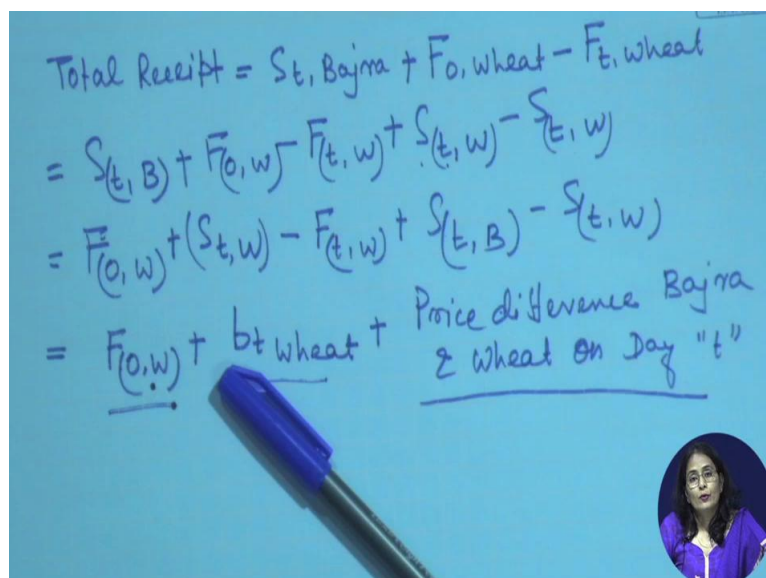 Total Receipt = St, Bajra + F0, wheat - Ft, wheat
= S(t, B) + F(0, W) - F(t, W) + S(t, W) - S(t, W)
= F(0, W) + (St, W) - F(t, W) + S(t, B) - S(t, W)
= F(0, W) + bt wheat + Price difference Bajra
& wheat on Day "t"